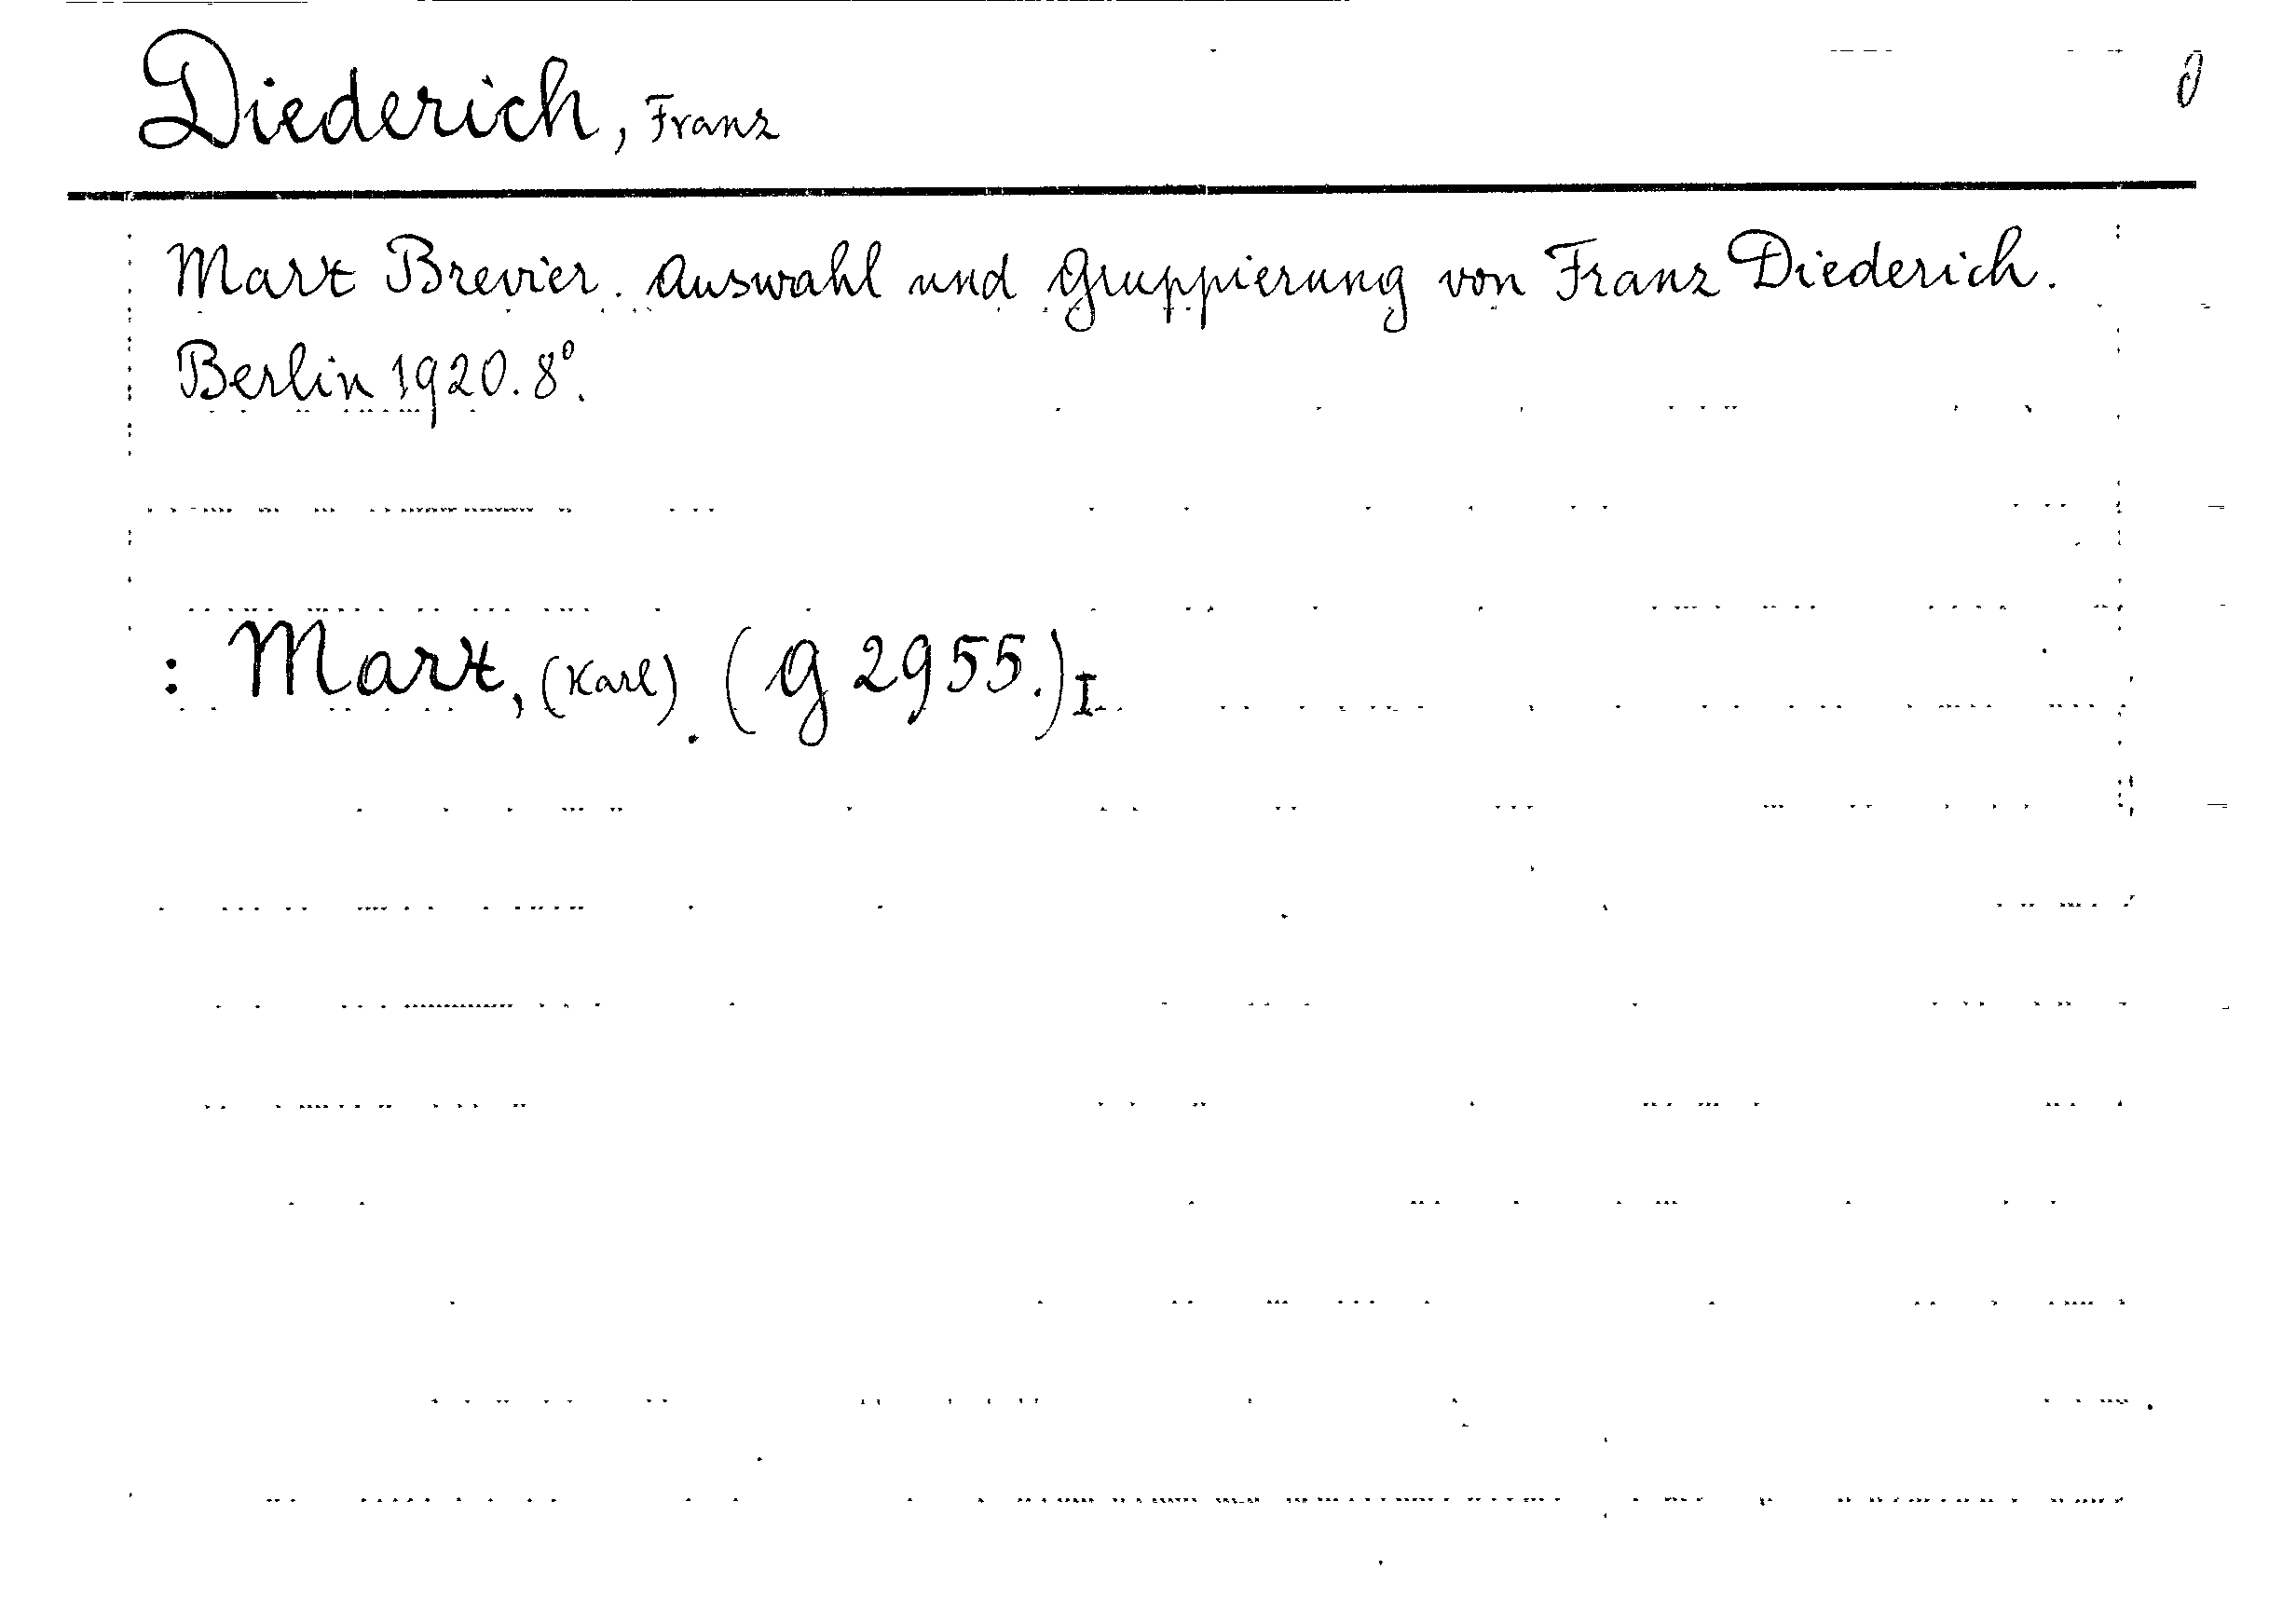 Diederich, Franz
Marx Brevier. Auswahl und Gruppierung von Franz Diederich.
Berlin 1920. 8°.
: Marx, (Karl). (G 2955.) I